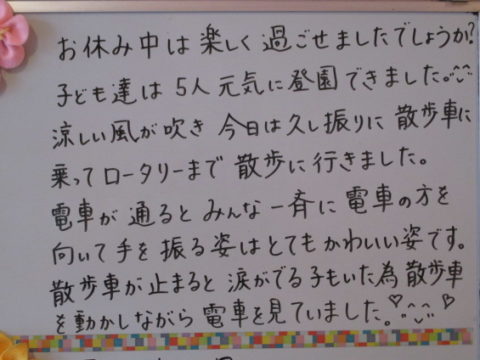 お休み中は楽しく過ごせましたでしょうか?
子ども達は5人元気に登園できました。^^
涼しい風が吹き今日は久し振りに散歩車に
乗ってロータリーまで散歩に行きました。
電車が通るとみんな一斉に電車の方を
向いて手を振る姿はとてもかわいい姿です。
散歩車が止まると涙がでる子もいた為散歩車
を動かしながら電車を見ていました。♡^^♡